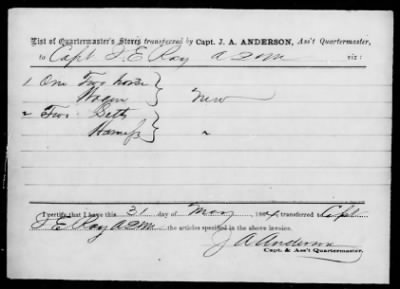 List of Quartermaster's Stores transferred by Capt. J. A. ANDERSON, Ass't Quartermaster,
to Capt T. E. Roy AQM viz:
1 One Two horse
Wagon New
2 Two Setts
Harness "
I certify that I have this 31 day of May 1864 transferred to Capt
T E Roy AQM the articles specified in the above invoice.
J A Anderson
Capt. & Ass't Quartermaster.